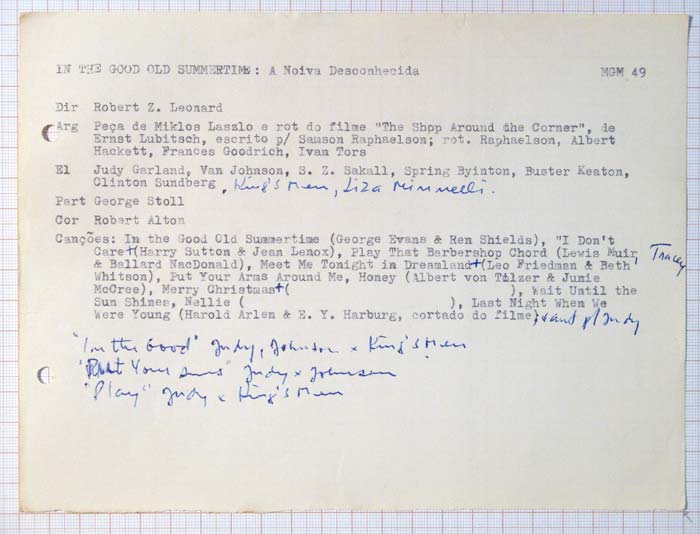 IN THE GOOD OLD SUMMERTIME: A Noiva Desconhecida MGM 49
Dir Robert Z. Leonard
Arg Peça de Miklos Laszlo e rot do filme "The Shop Around the Corner", de
Ernst Lubitsch, escrito p/ Samson Raphaelson; rot. Raphaelson, Albert
Hackett, Frances Goodrich, Ivan Tors
El Judy Garland, Van Johnson, S. Z. Sakall, Spring Byinton, Buster Keaton,
Clinton Sundberg, King's Men, Liza Minnelli.
Part George Stoll
Cor Robert Alton
Canções: In the Good Old Summertime (George Evans & Ren Shields), "I Don't
Care+(Harry Sutton & Jean Lenox), Play That Barbershop Chord (Lewis Muir, Tracey
& Ballard NacDonald), Meet Me Tonight in Dreamland+(Leo Friedman & Beth
Whitson), Put Your Arms Around Me, Honey (Albert von Tilzer & Junie
McCree), Merry Christmas+( ), Wait Until the
Sun Shines, Nellie ( ), Last Night When We
Were Young (Harold Arlen & E. Y. Harburg, cortado do filme) +cant p/Judy
"In the Good" Judy, Johnson x King's Men
"Put Your arms" Judy x Johnson
"Play" Judy x King's Men